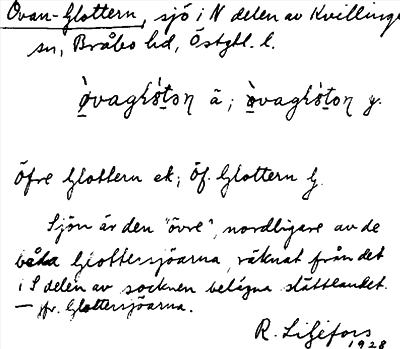 Ovan-Glottern, sjö i N delen av Kvillinge
sn, Bråbo hd, Östgtl. l.
ä ; y.
Öfre Glottern ek; Öf. Glottern G.
Sjön är den "övre", nordligare av de
båda Glottersjöarna, räknat från det
i S delen av socknen belägna slättlandet.
— jfr. Glottersjöarna.
R. Liljefors
1928